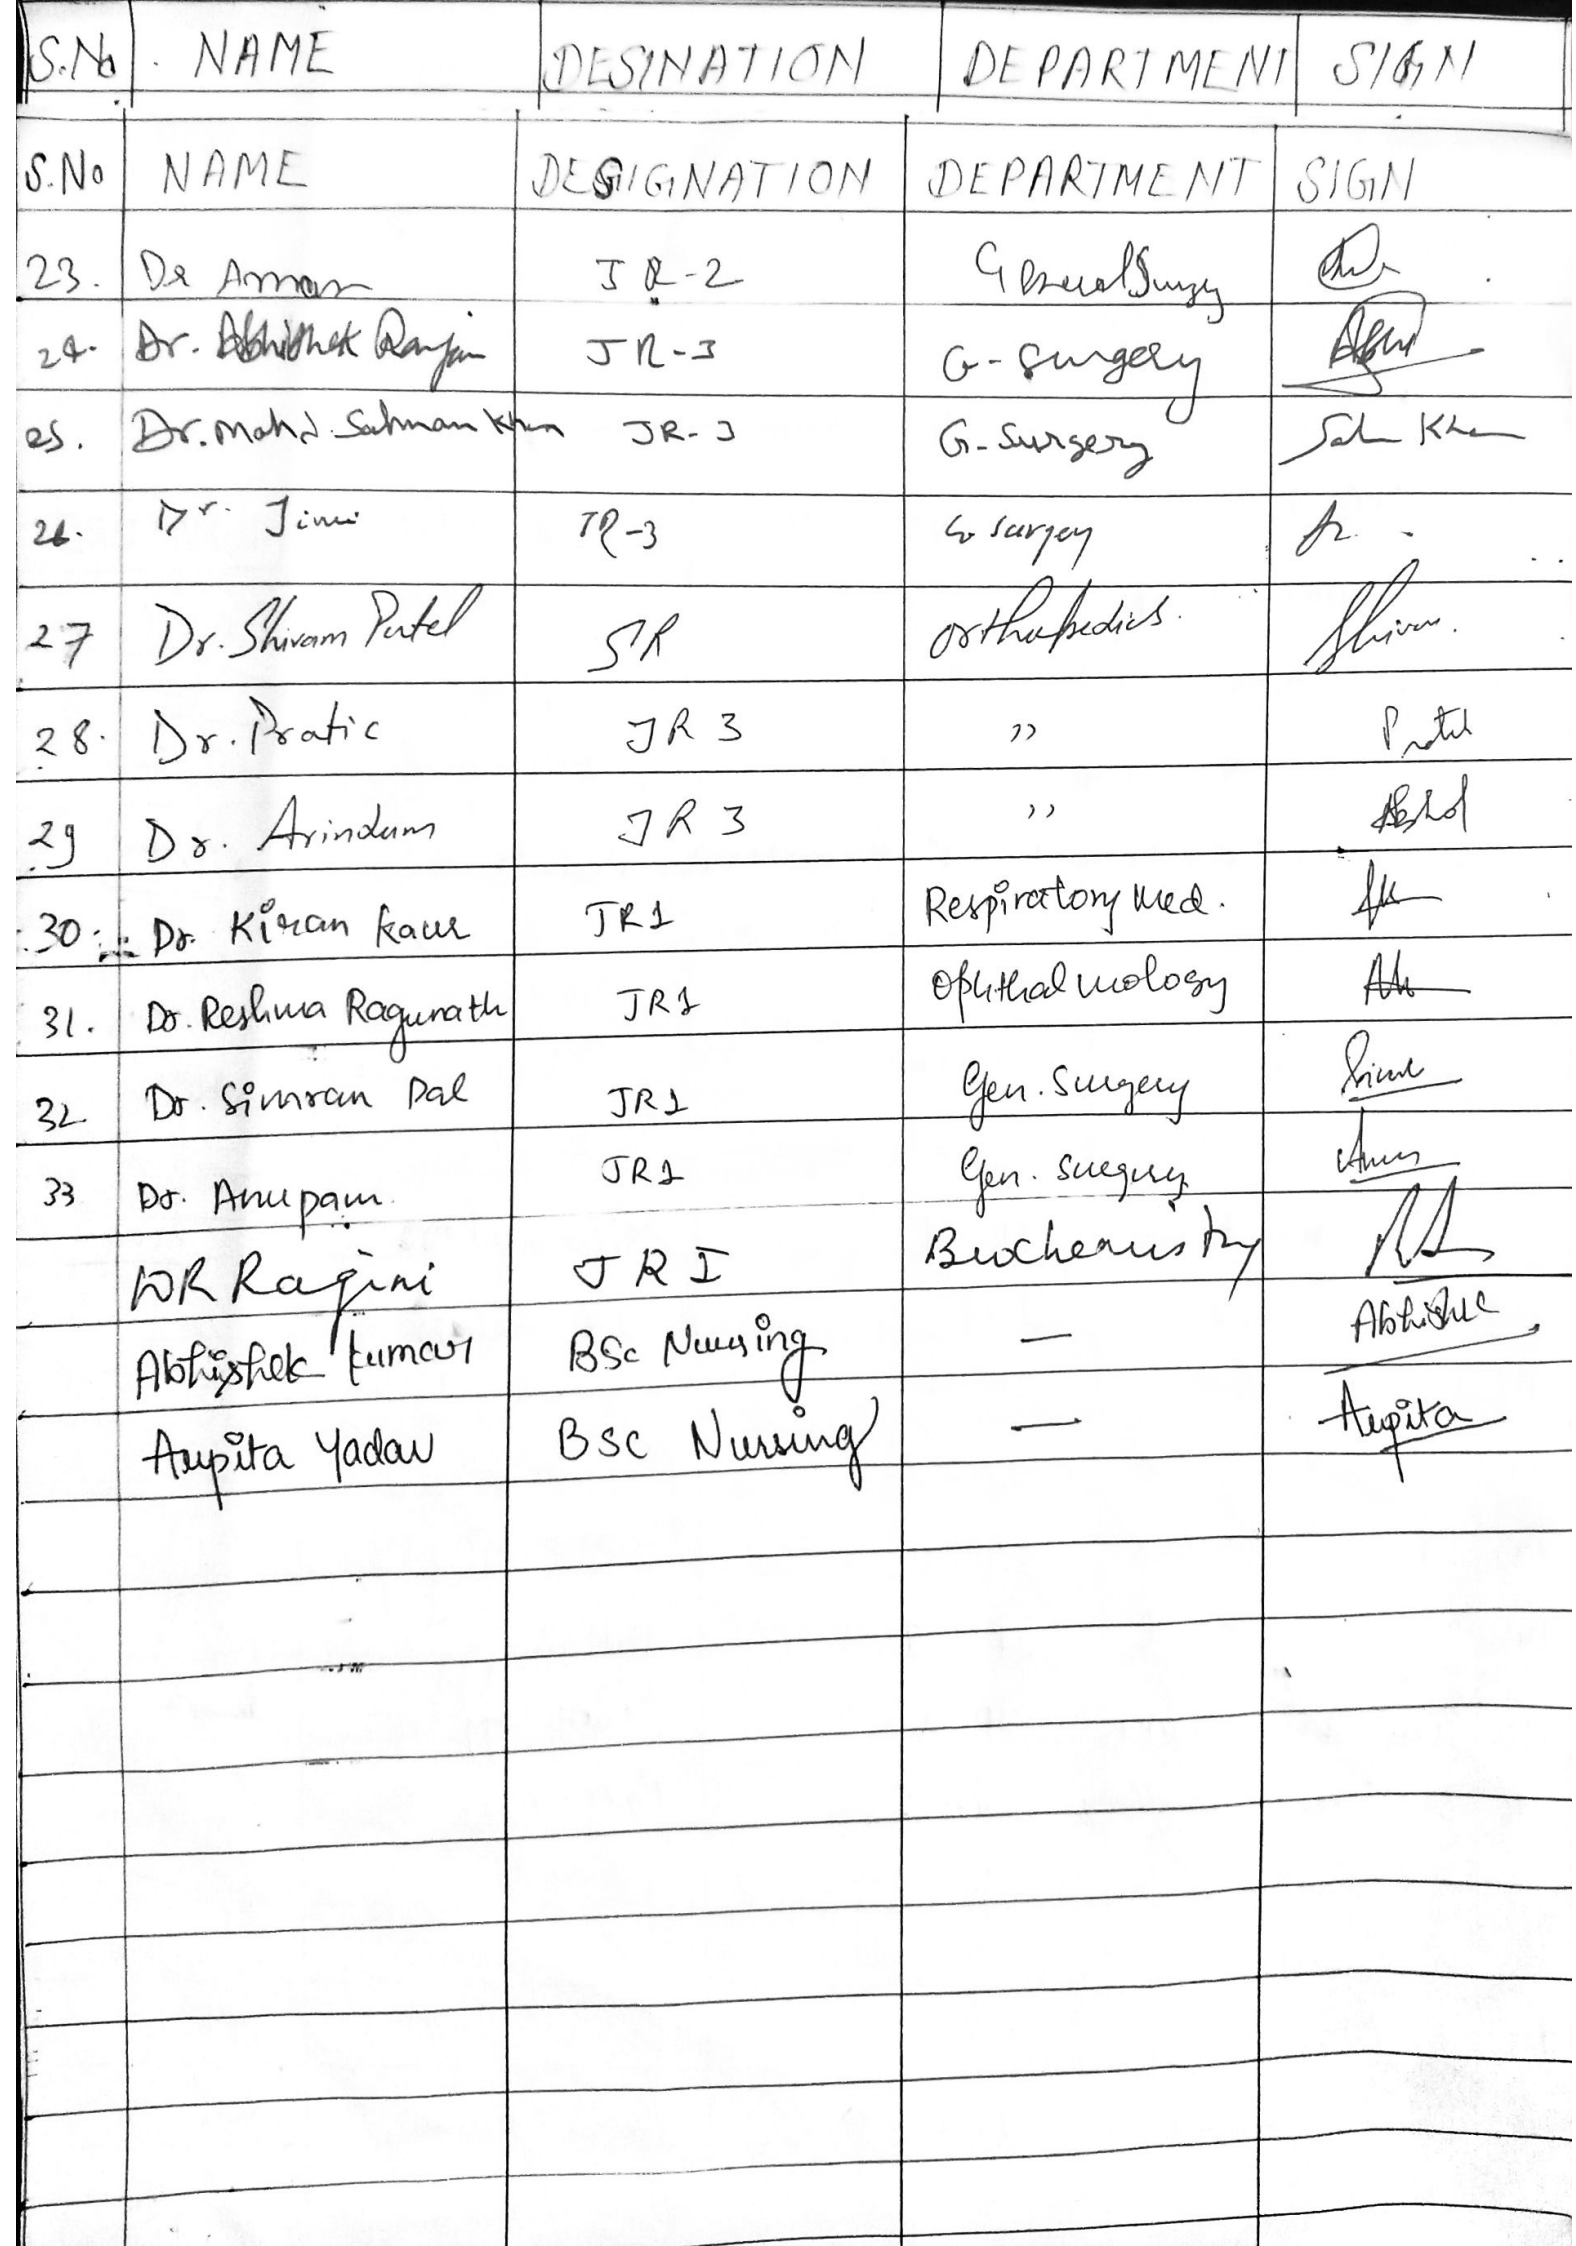 S.No NAME DESINATION DEPARTMENT SIGN
S.No NAME DESIGNATION DEPARTMENT SIGN
23. Dr Aman JR-2 General Surgery
24. Dr. Abhishek Ranjan JR-3 G-Surgery
25. Dr. Mohd. Salman Khan JR-3 G-Surgery Salman Khan
26. Dr. Jimi JR-3 G surgery
27 Dr. Shivam Patel SR Orthopedics. Shivam
28. Dr. Pratic JR 3 ,, Pratik
29 Dr. Arindum JR 3 ,,
30. Dr. Kiran Kaur JR1 Respiratory Med.
31. Dr. Reshma Ragunath JR1 Ophthalmology
32 Dr. Simran Pal JR1 Gen. Surgery
33 Dr. Anupam JR1 Gen. Surgery
DR Ragini JR I Biochemistry
Abhishek Kumar BSc Nursing — Abhishek
Arpita Yadav BSC Nursing — Arpita